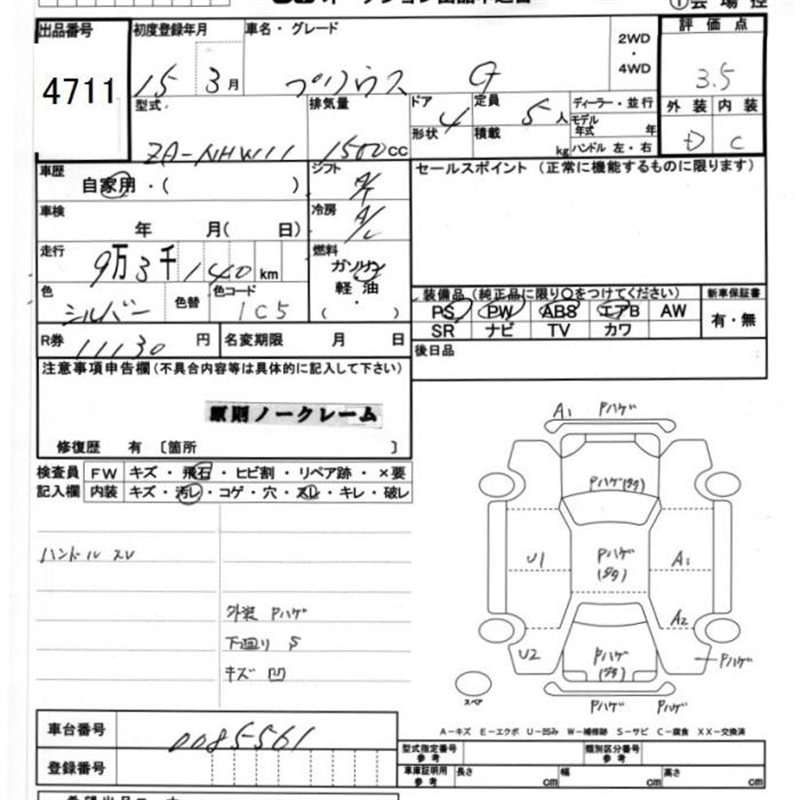 出品番号 初度登録年月 車名・グレード 2WD・4WD 評価点
4711 15 3月 プリウス G 3.5
型式 排気量 ドア 定員 ディーラー・並行 外装 内装
ZA-NHW11 1500CC 4 5人 モデル年式 年 D C
形状 積載 kg ハンドル 左・右
車歴 シフト セールスポイント (正常に機能するものに限ります)
自家用・( ) A/T
車検 年 月( 日) 冷房 A/C
走行 9万3千140km 燃料
ガソリン
軽油
・
( )
色 シルバー 色替 色コード 1C5
装備品(純正品に限り○をつけてください) 新車保証書
PS PW ABS エアB AW 有・無
SR ナビ TV カワ
R券 11130円 名変期限 月 日
後日品
注意事項申告欄(不具合内容等は具体的に記入して下さい)
原則ノークレーム
修復歴 有 〔箇所 〕
検査員 FW キズ・飛石・ヒビ割・リペア跡・×要
記入欄 内装 キズ・汚レ・コゲ・穴・スレ・キレ・破レ
ハンドル スレ
外装 Pハゲ
下回り S
キズ 凹
A1 Pハゲ
Pハゲ(タタ)
U1 Pハゲ(タタ) A1
A2
U2 Pハゲ(タタ) Pハゲ
スペア
Pハゲ Pハゲ
A-キズ E-エクボ U-凹み W-補修跡 S-サビ C-腐食 XX-交換済
車台番号 0085561
登録番号
型式指定番号 参考 類別区分番号 参考
車庫証明用 参考 長さ cm 幅 cm 高さ cm